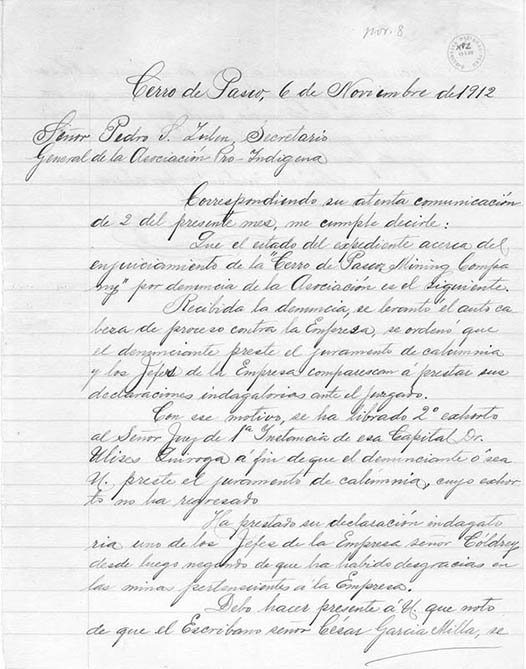 nov. 8
Cerro de Pasco, 6 de Noviembre de 1912
Señor Pedro S. Zulen, Secretario
General de la Asociación Pro-Indígena
Correspondiendo su atenta comunicación
de 2 del presente mes, me cumple decirle:
Que el estado del expediente acerca del
enjuiciamiento de la "Cerro de Pasco Mining Compa
ny" por denuncia de la Asociación es el siguiente.
Recibida la denuncia, se levantó el auto ca
beza de proceso contra la Empresa, se ordenó que
el denunciante preste el juramento de calumnia
y los Jefes de la Empresa comparescan á prestar sus
declaraciones indagatorias ante el juzgado.
Con ese motivo, se ha librado 2º exhorto
al Señor Juez de 1ª Instancia de esa Capital Dr.
Ulises Quiroga á fin de que el denunciante ó sea
U. preste el juramento de calumnia, cuyo exhor
to no ha regresado
Ha prestado su declaración indagato
ria uno de los Jefes de la Empresa señor Cóldrey
desde luego negando de que ha habido desgracias en
las minas pertenecientes á la Empresa.
Debo hacer presente á U. que noto
de que el Escribano señor César García Milla, se